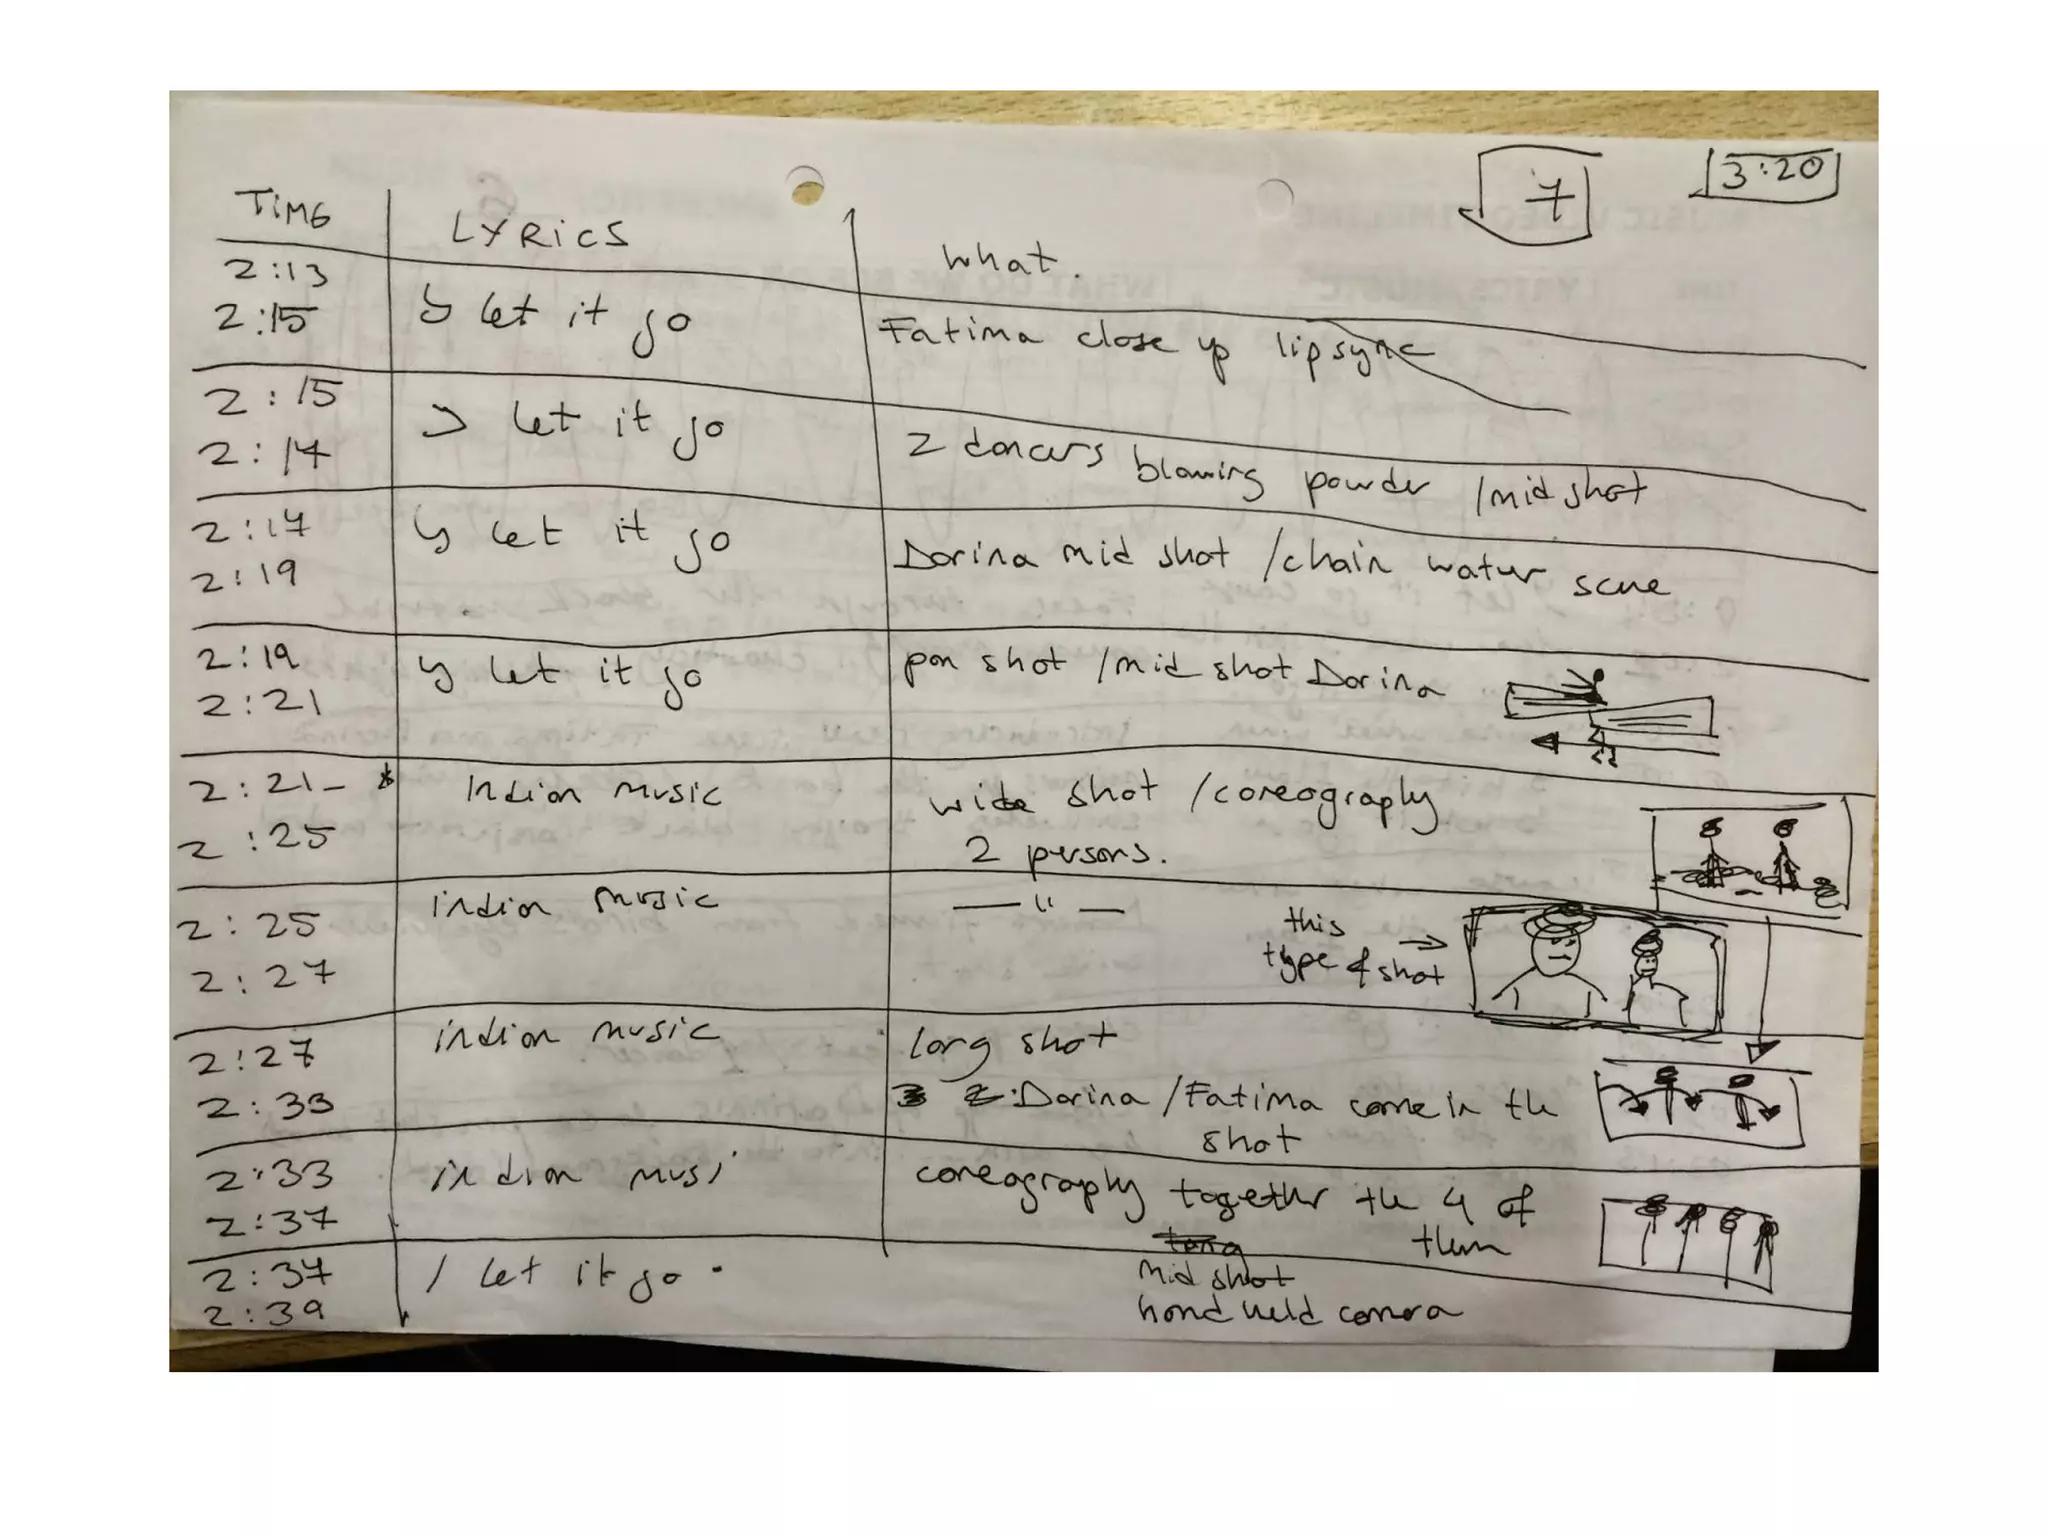 7
3:20
TIME
LYRICS
what.
2:13
2:15
let it go
Fatima close up lipsync
2:15
2:17
let it go
2 dancers blowing powder / mid shot
2:17
2:19
let it go
Dorina mid shot / chain water scene
2:19
2:21
let it go
pan shot / mid shot Dorina
2:21 - *
2:25
Indian music
wide shot / coreography
2 persons.
2:25
2:27
indian music
— " —
this
type of shot →
2:27
2:33
indian music
long shot
2: Dorina / Fatima come in the
shot
2:33
2:37
indian musi
coreography together the 4 of
them
2:37
2:39
I let it go.
mid shot
hand held camera